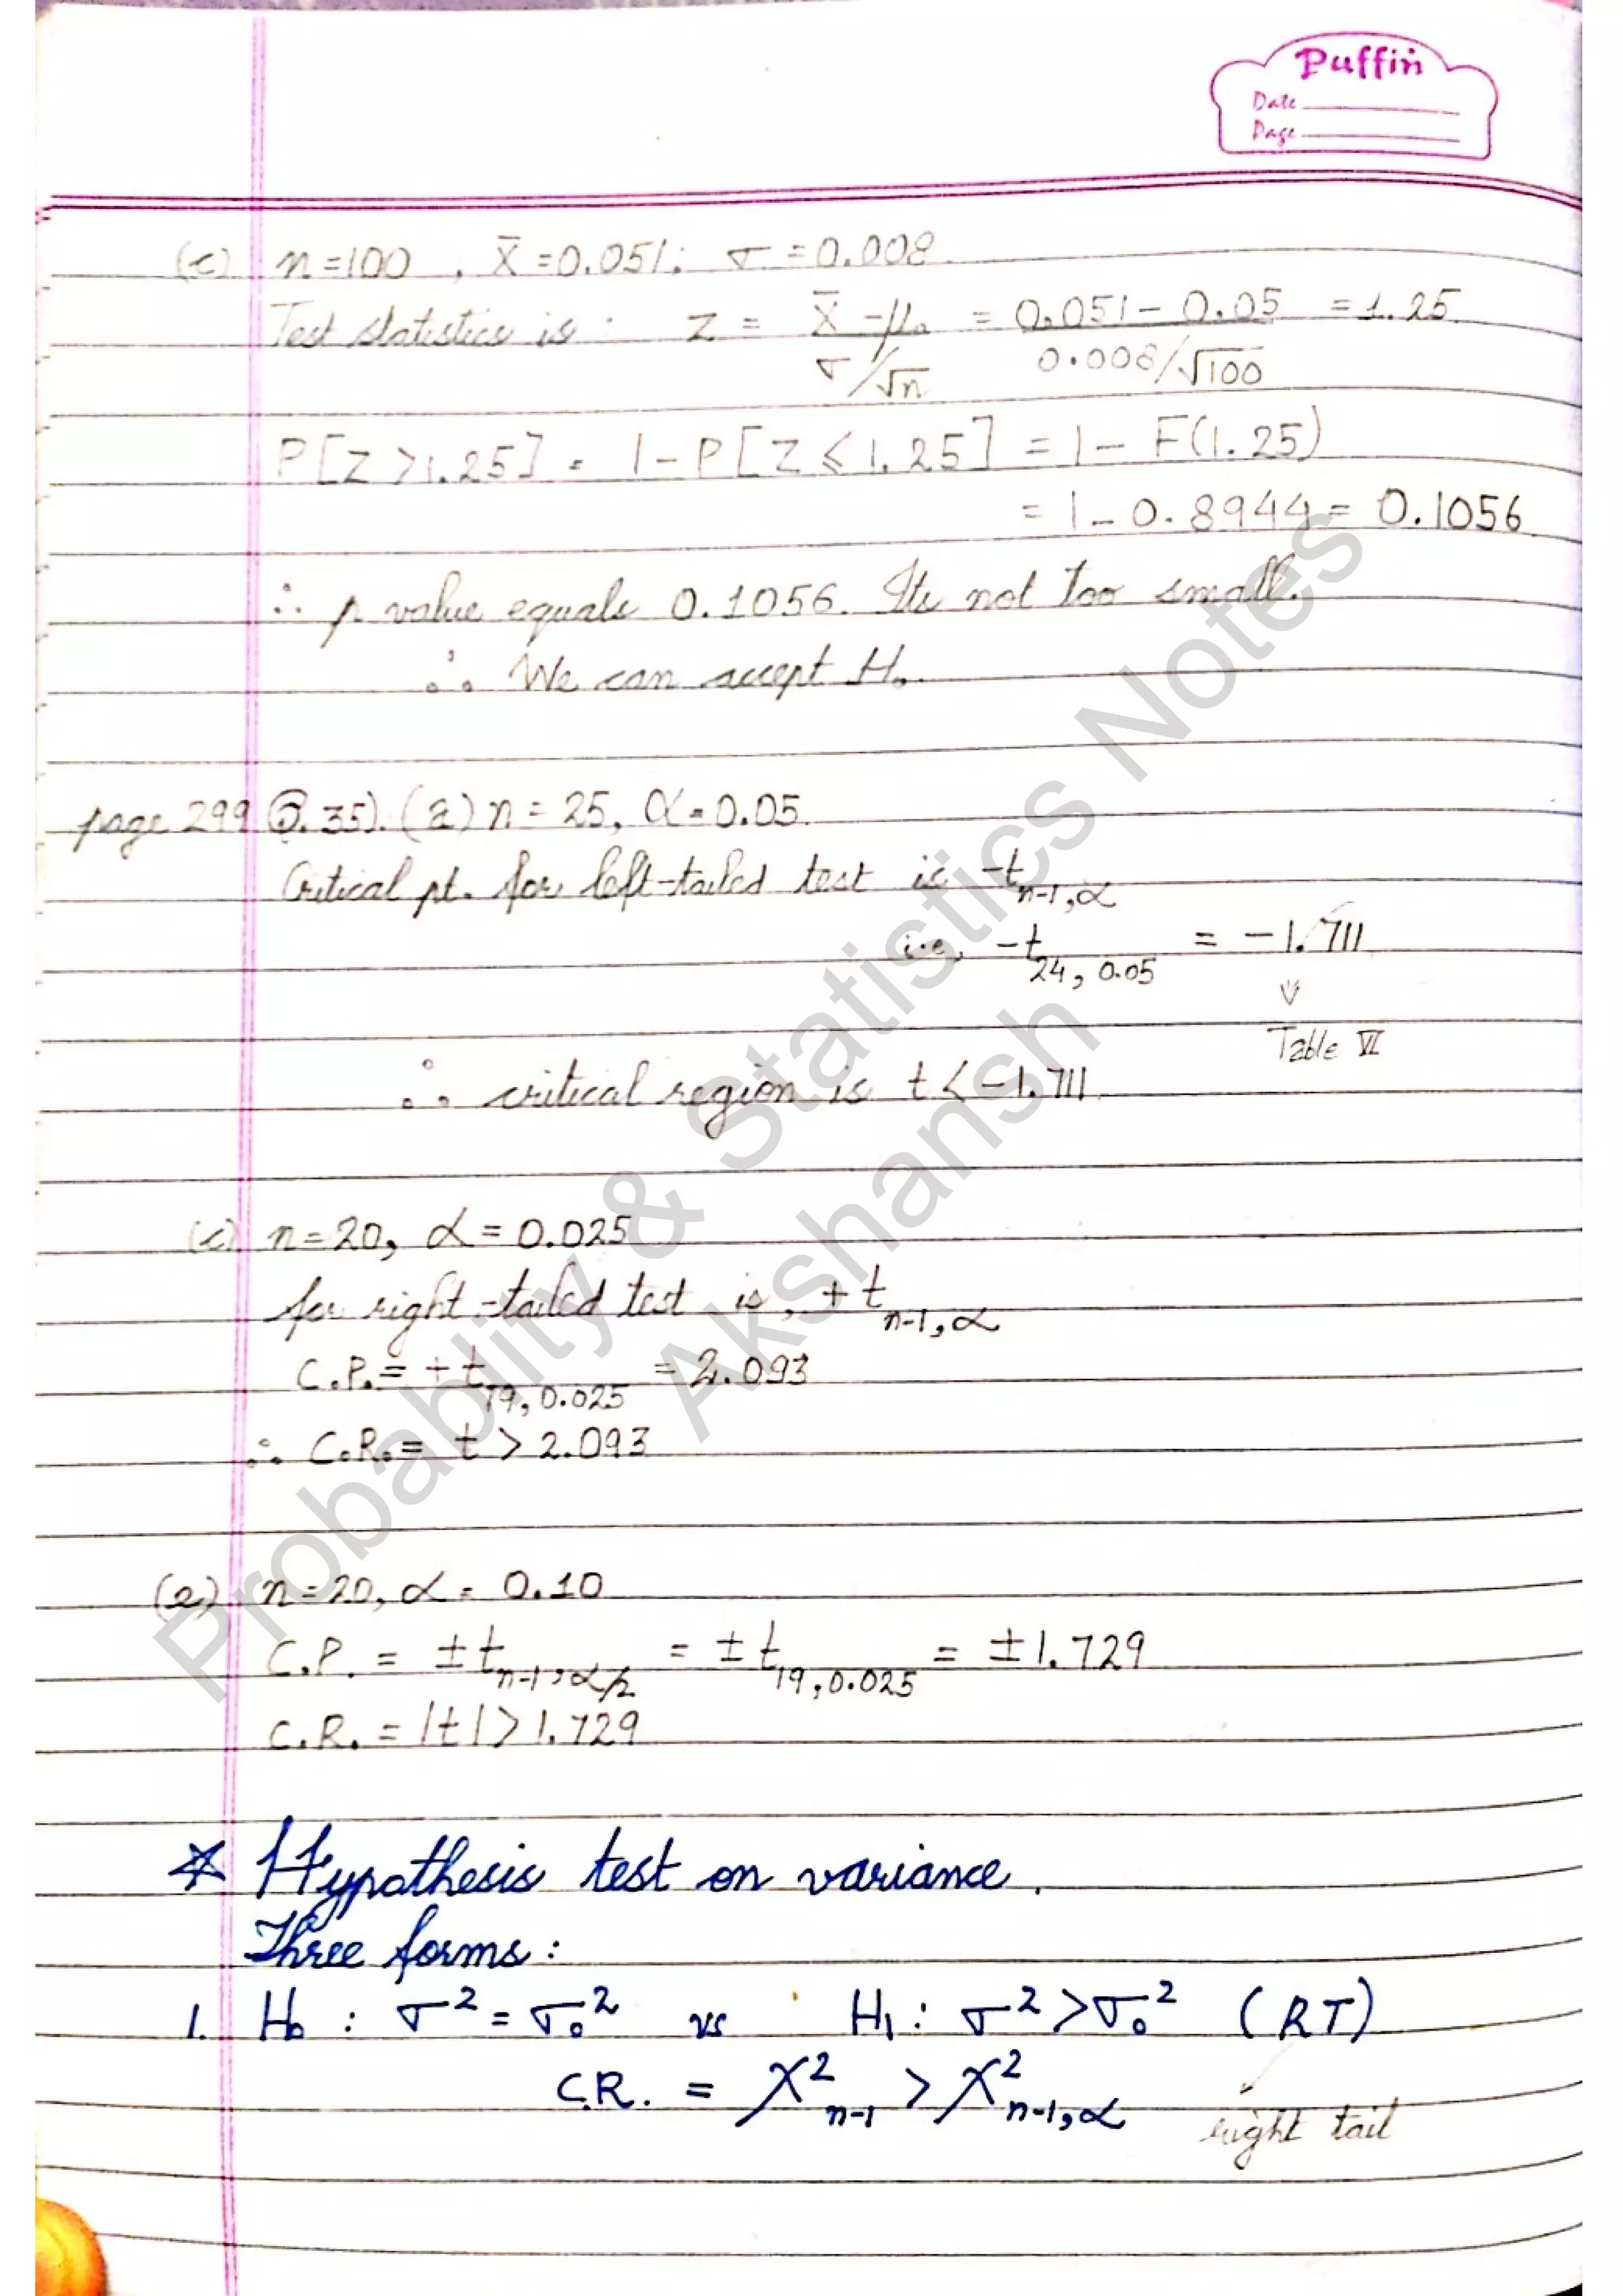 Puffin
Date
Page
(c) n=100, X̄ = 0.051; σ = 0.008
Test statistics is: Z = (X̄ - μ₀)/(σ/√n) = (0.051 - 0.05)/(0.008/√100) = 1.25
P[Z > 1.25] = 1 - P[Z ≤ 1.25] = 1 - F(1.25)
= 1 - 0.8944 = 0.1056
∴ p value equals 0.1056. Its not too small.
∴ We can accept H₀.
page 299 8.35). (a) n = 25, α = 0.05.
Critical pt. for left-tailed test is -t n-1,α
i.e, -t 24, 0.05 = -1.711
Table VI
∴ critical region is t < -1.711
(c) n=20, α = 0.025
for right-tailed test is, +t n-1,α
C.P. = +t 19, 0.025 = 2.093
∴ C.R. = t > 2.093
(e) n=20, α = 0.10
C.P. = ±t n-1, α/2 = ±t 19, 0.025 = ±1.729
C.R. = |t| > 1.729
* Hypothesis test on variance.
Three forms:
1. H₀ : σ² = σ₀² vs H₁ : σ² > σ₀² (RT)
C.R. = χ² n-1 > χ² n-1,α
right tail
Probablity & Statistics Notes
Akshansh